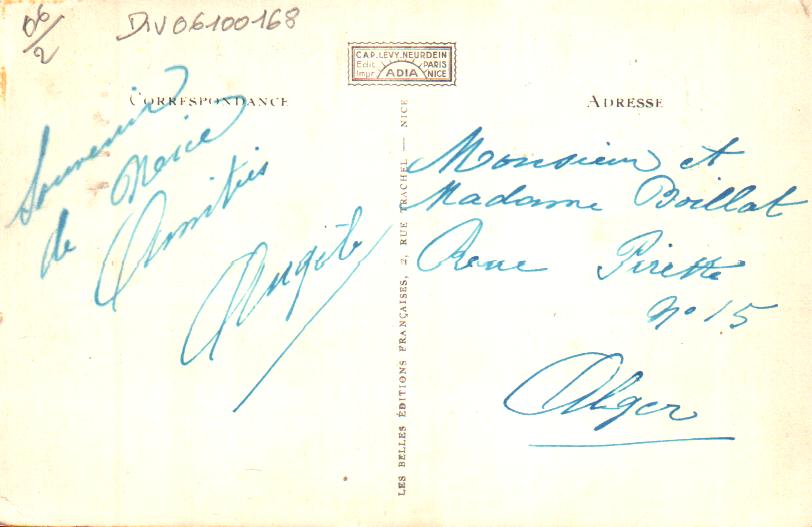 06/2
DIV06100168
C.A.P. LÉVY. NEURDEIN
Edit. PARIS
Impr. ADIA NICE
CORRESPONDANCE
ADRESSE
Souvenir
de Nice
Amitiés
LES BELLES ÉDITIONS FRANÇAISES, 2, RUE TRACHEL — NICE
Monsieur et
Madame Boillat
Rue Pirette
N° 15
Alger